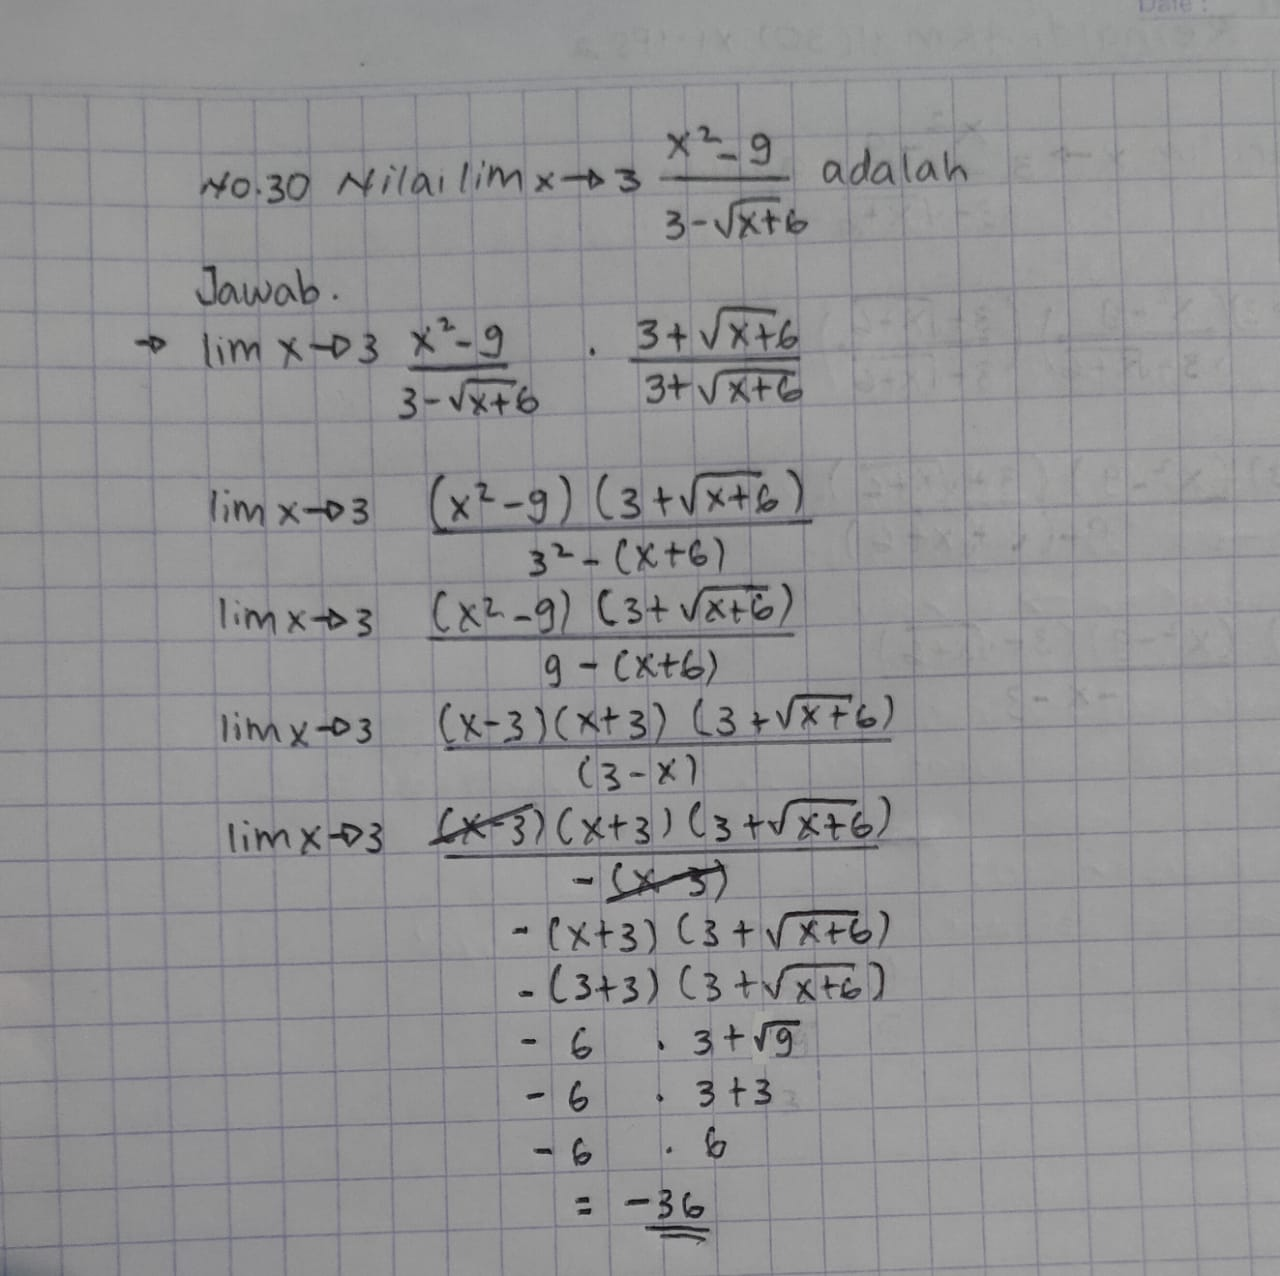 Date :
No.30 Nilai lim x→3 x²-9 / 3-√x+6 adalah
Jawab.
→ lim x→3 x²-9 / 3-√x+6 . 3+√x+6 / 3+√x+6
lim x→3 (x²-9) (3+√x+6) / 3²-(x+6)
lim x→3 (x²-9) (3+√x+6) / 9-(x+6)
lim x→3 (x-3)(x+3) (3+√x+6) / (3-x)
lim x→3 (x-3)(x+3)(3+√x+6) / -(x-3)
-(x+3)(3+√x+6)
-(3+3)(3+√x+6)
- 6 . 3+√9
- 6 . 3+3
- 6 . 6
= -36